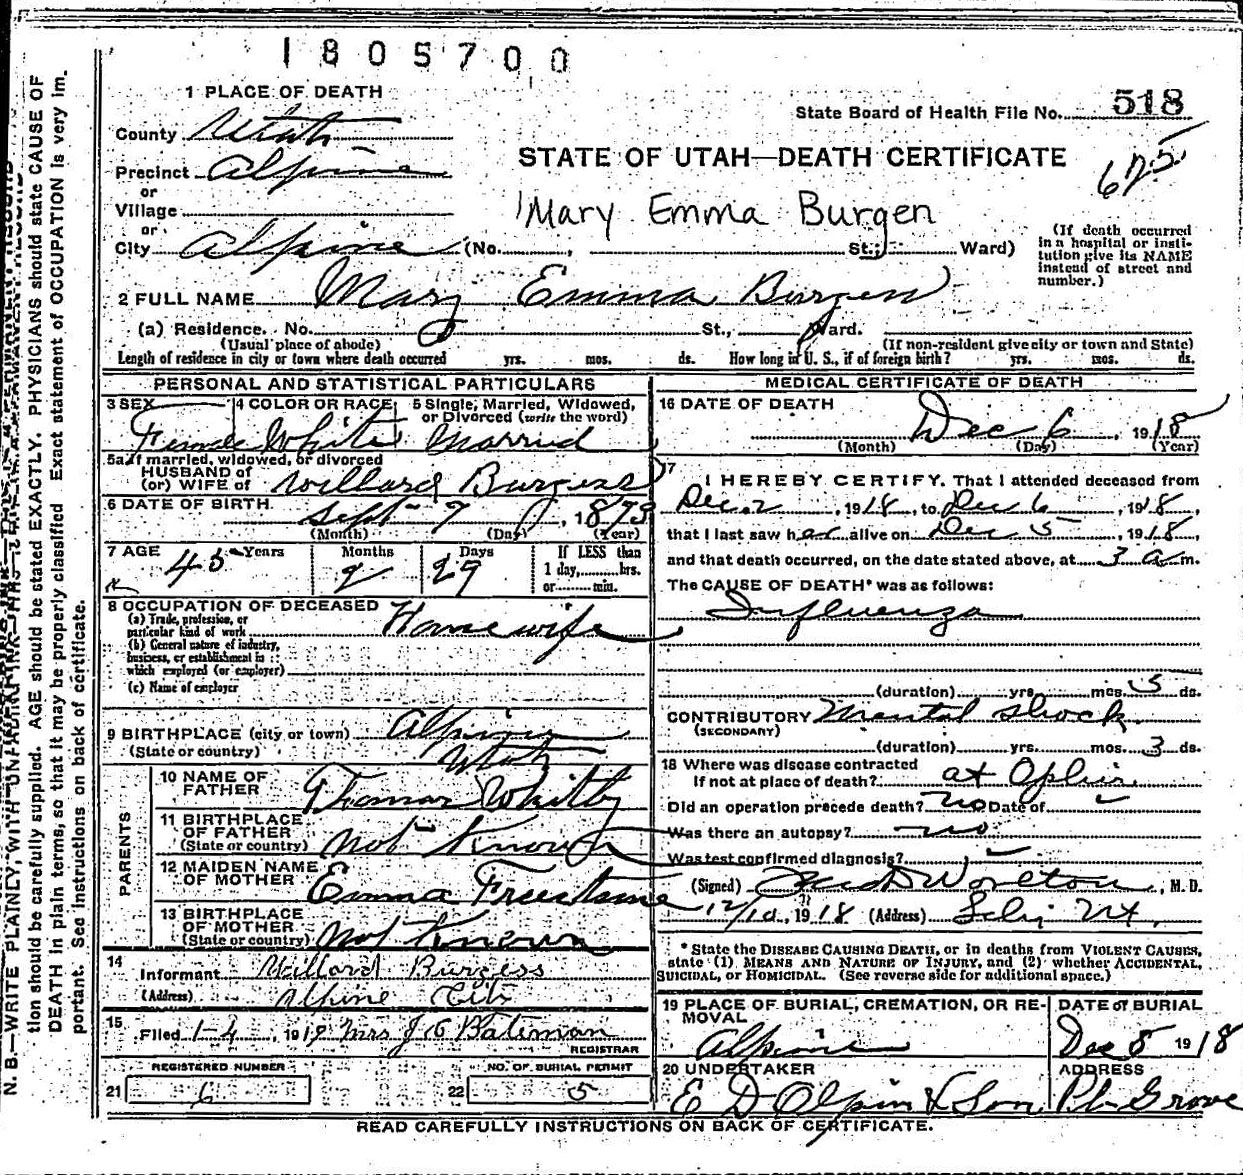 1805700
1 PLACE OF DEATH
State Board of Health File No. 518
County Utah
STATE OF UTAH—DEATH CERTIFICATE
675
Precinct Alpine
or
Village
Mary Emma Burgen
or
City Alpine (No. , St.; Ward)
(If death occurred
in a hospital or insti-
tution give its NAME
instead of street and
number.)
2 FULL NAME Mary Emma Burgess
(a) Residence. No. St., Ward.
(Usual place of abode) (If non-resident give city or town and State)
Length of residence in city or town where death occurred yrs. mos. ds. How long in U. S., if of foreign birth? yrs. mos. ds.
PERSONAL AND STATISTICAL PARTICULARS
3 SEX 4 COLOR OR RACE 5 Single, Married, Widowed,
or Divorced (write the word)
Female White Married
5a If married, widowed, or divorced
HUSBAND of
(or) WIFE of Willard Burgess
6 DATE OF BIRTH Sept 7, 1873
(Month) (Day) (Year)
7 AGE 45 Years Months 2 Days 29 If LESS than
1 day, hrs.
or min.
8 OCCUPATION OF DECEASED Housewife
(a) Trade, profession, or
particular kind of work
(b) General nature of industry,
business, or establishment in
which employed (or employer)
(c) Name of employer
9 BIRTHPLACE (city or town) Alpine
(State or country) Utah
PARENTS
10 NAME OF
FATHER Thomas Whitby
11 BIRTHPLACE
OF FATHER
(State or country) Not Known
12 MAIDEN NAME
OF MOTHER Emma Freestone
13 BIRTHPLACE
OF MOTHER
(State or country) Not Known
14
Informant Willard Burgess
(Address) Alpine City
15
Filed 1-4, 1919 Mrs J E Bateman
REGISTRAR
REGISTERED NUMBER NO. OF BURIAL PERMIT
21 6 22 5
MEDICAL CERTIFICATE OF DEATH
16 DATE OF DEATH
Dec 6, 1918
(Month) (Day) (Year)
17
I HEREBY CERTIFY, That I attended deceased from
Dec 2, 1918, to Dec 6, 1918,
that I last saw her alive on Dec 5, 1918,
and that death occurred, on the date stated above, at 3 a m.
The CAUSE OF DEATH* was as follows:
Influenza
(duration) yrs. mos. 5 ds.
CONTRIBUTORY Mental Shock
(SECONDARY)
(duration) yrs. mos. 3 ds.
18 Where was disease contracted
If not at place of death? at Ophir
Did an operation precede death? no Date of
Was there an autopsy? no
Was test confirmed diagnosis?
(Signed) Worlton, M. D.
12/10, 1918 (Address) Lehi Ut.
* State the DISEASE CAUSING DEATH, or in deaths from VIOLENT CAUSES,
state (1) MEANS AND NATURE OF INJURY, and (2) whether ACCIDENTAL,
SUICIDAL, or HOMICIDAL. (See reverse side for additional space.)
19 PLACE OF BURIAL, CREMATION, OR RE-
MOVAL
Alpine
DATE of BURIAL
Dec 8 1918
20 UNDERTAKER
E D Olpin & Son
ADDRESS
Pl. Grove
READ CAREFULLY INSTRUCTIONS ON BACK OF CERTIFICATE.
N. B.—WRITE PLAINLY, WITH UNFADING INK
tion should be carefully supplied. AGE should be stated EXACTLY. PHYSICIANS should state CAUSE OF
DEATH in plain terms, so that it may be properly classified. Exact statement of OCCUPATION is very im-
portant. See instructions on back of certificate.